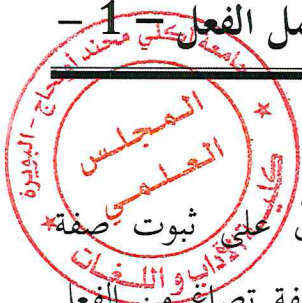 مل الفعل – 1 –
جامعة أكلي محند أولحاج - البويرة
المجلس
العلمي
كلية الآداب واللغات
على ثبوت صفة
فة تصاغ من الفعل